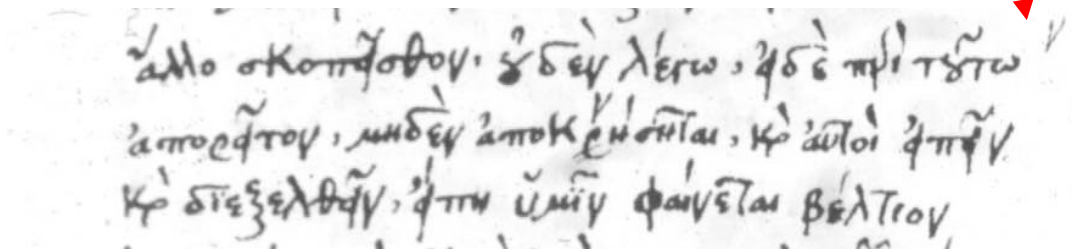 ἄλλο σκοπεῖσθον, οὐδὲν λέγω, εἰ δὲ περὶ τούτω
ἀπορεῖτον, μηδὲν ἀποκνήσηται, καὶ αὐτοὶ εἰπεῖν
καὶ διεξελθεῖν, εἴπη ὑμῖν φαίνεται βέλτιον